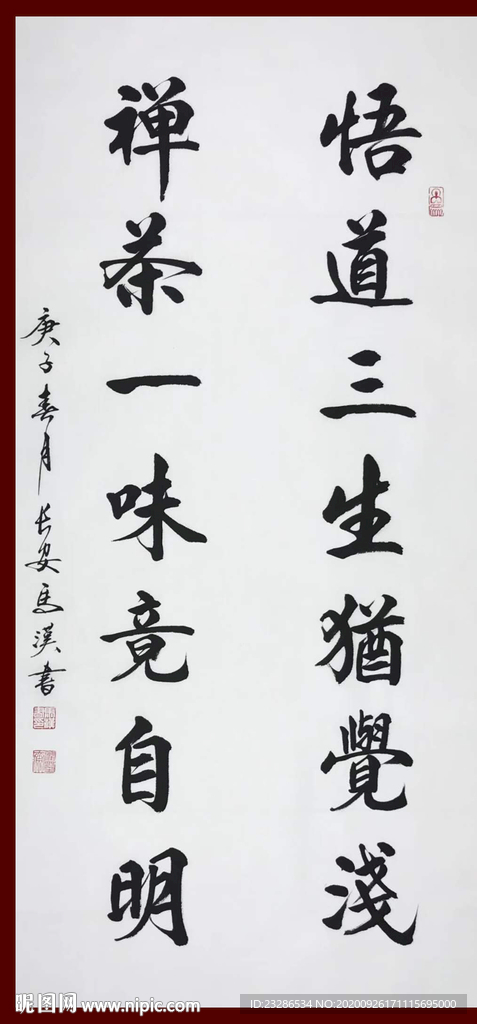 悟道三生猶覺淺
禅茶一味竟自明
庚子春月长安馬漢書
昵图网 www.nipic.com
ID:23286534 NO:20200926171115695000